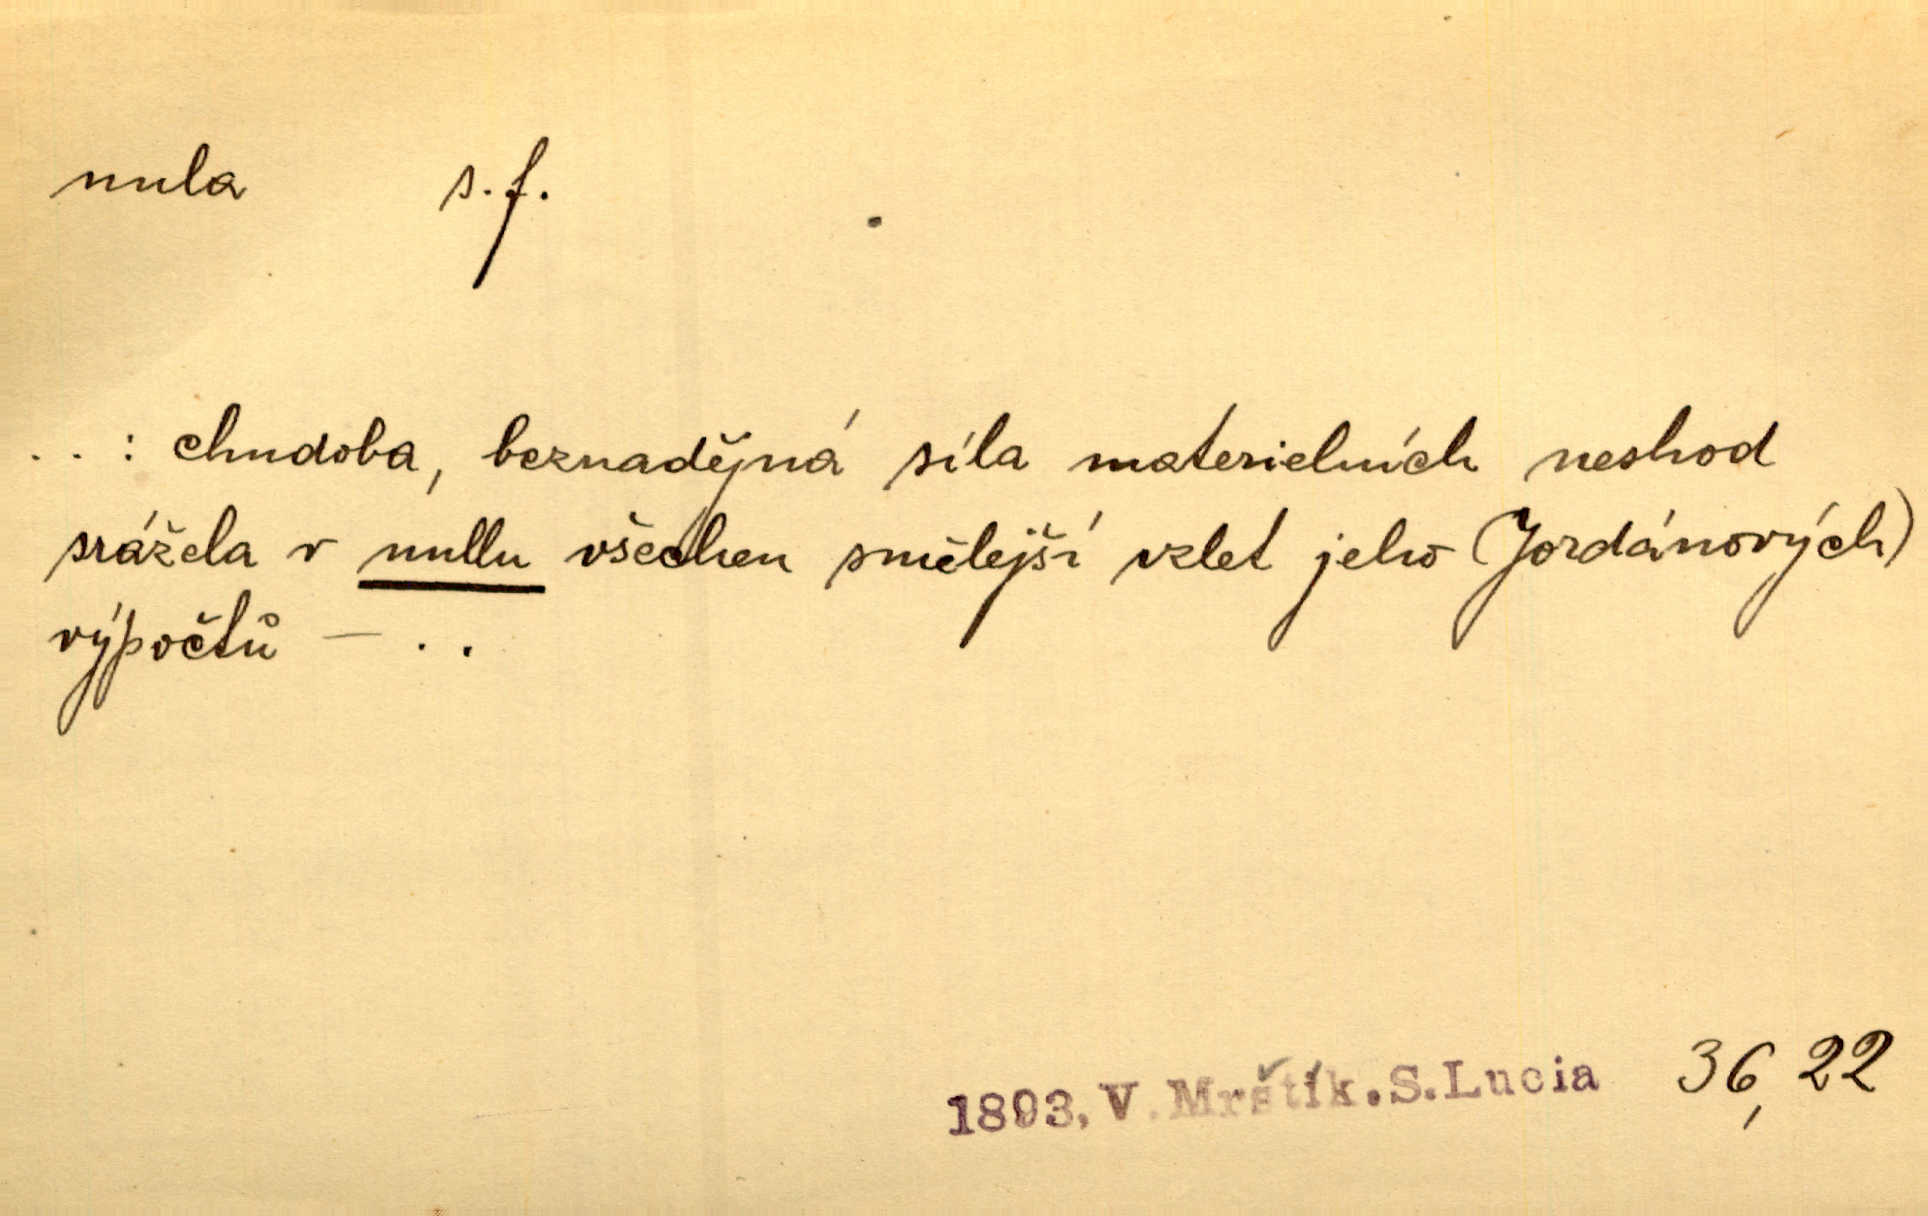 nula s. f.
. . : chudoba, beznadějná síla materielních neshod
srážela v nullu všechen smělejší vzlet jeho (Jordánových)
výpočtů — . .
1893, V. Mrštík. S. Lucia 36, 22